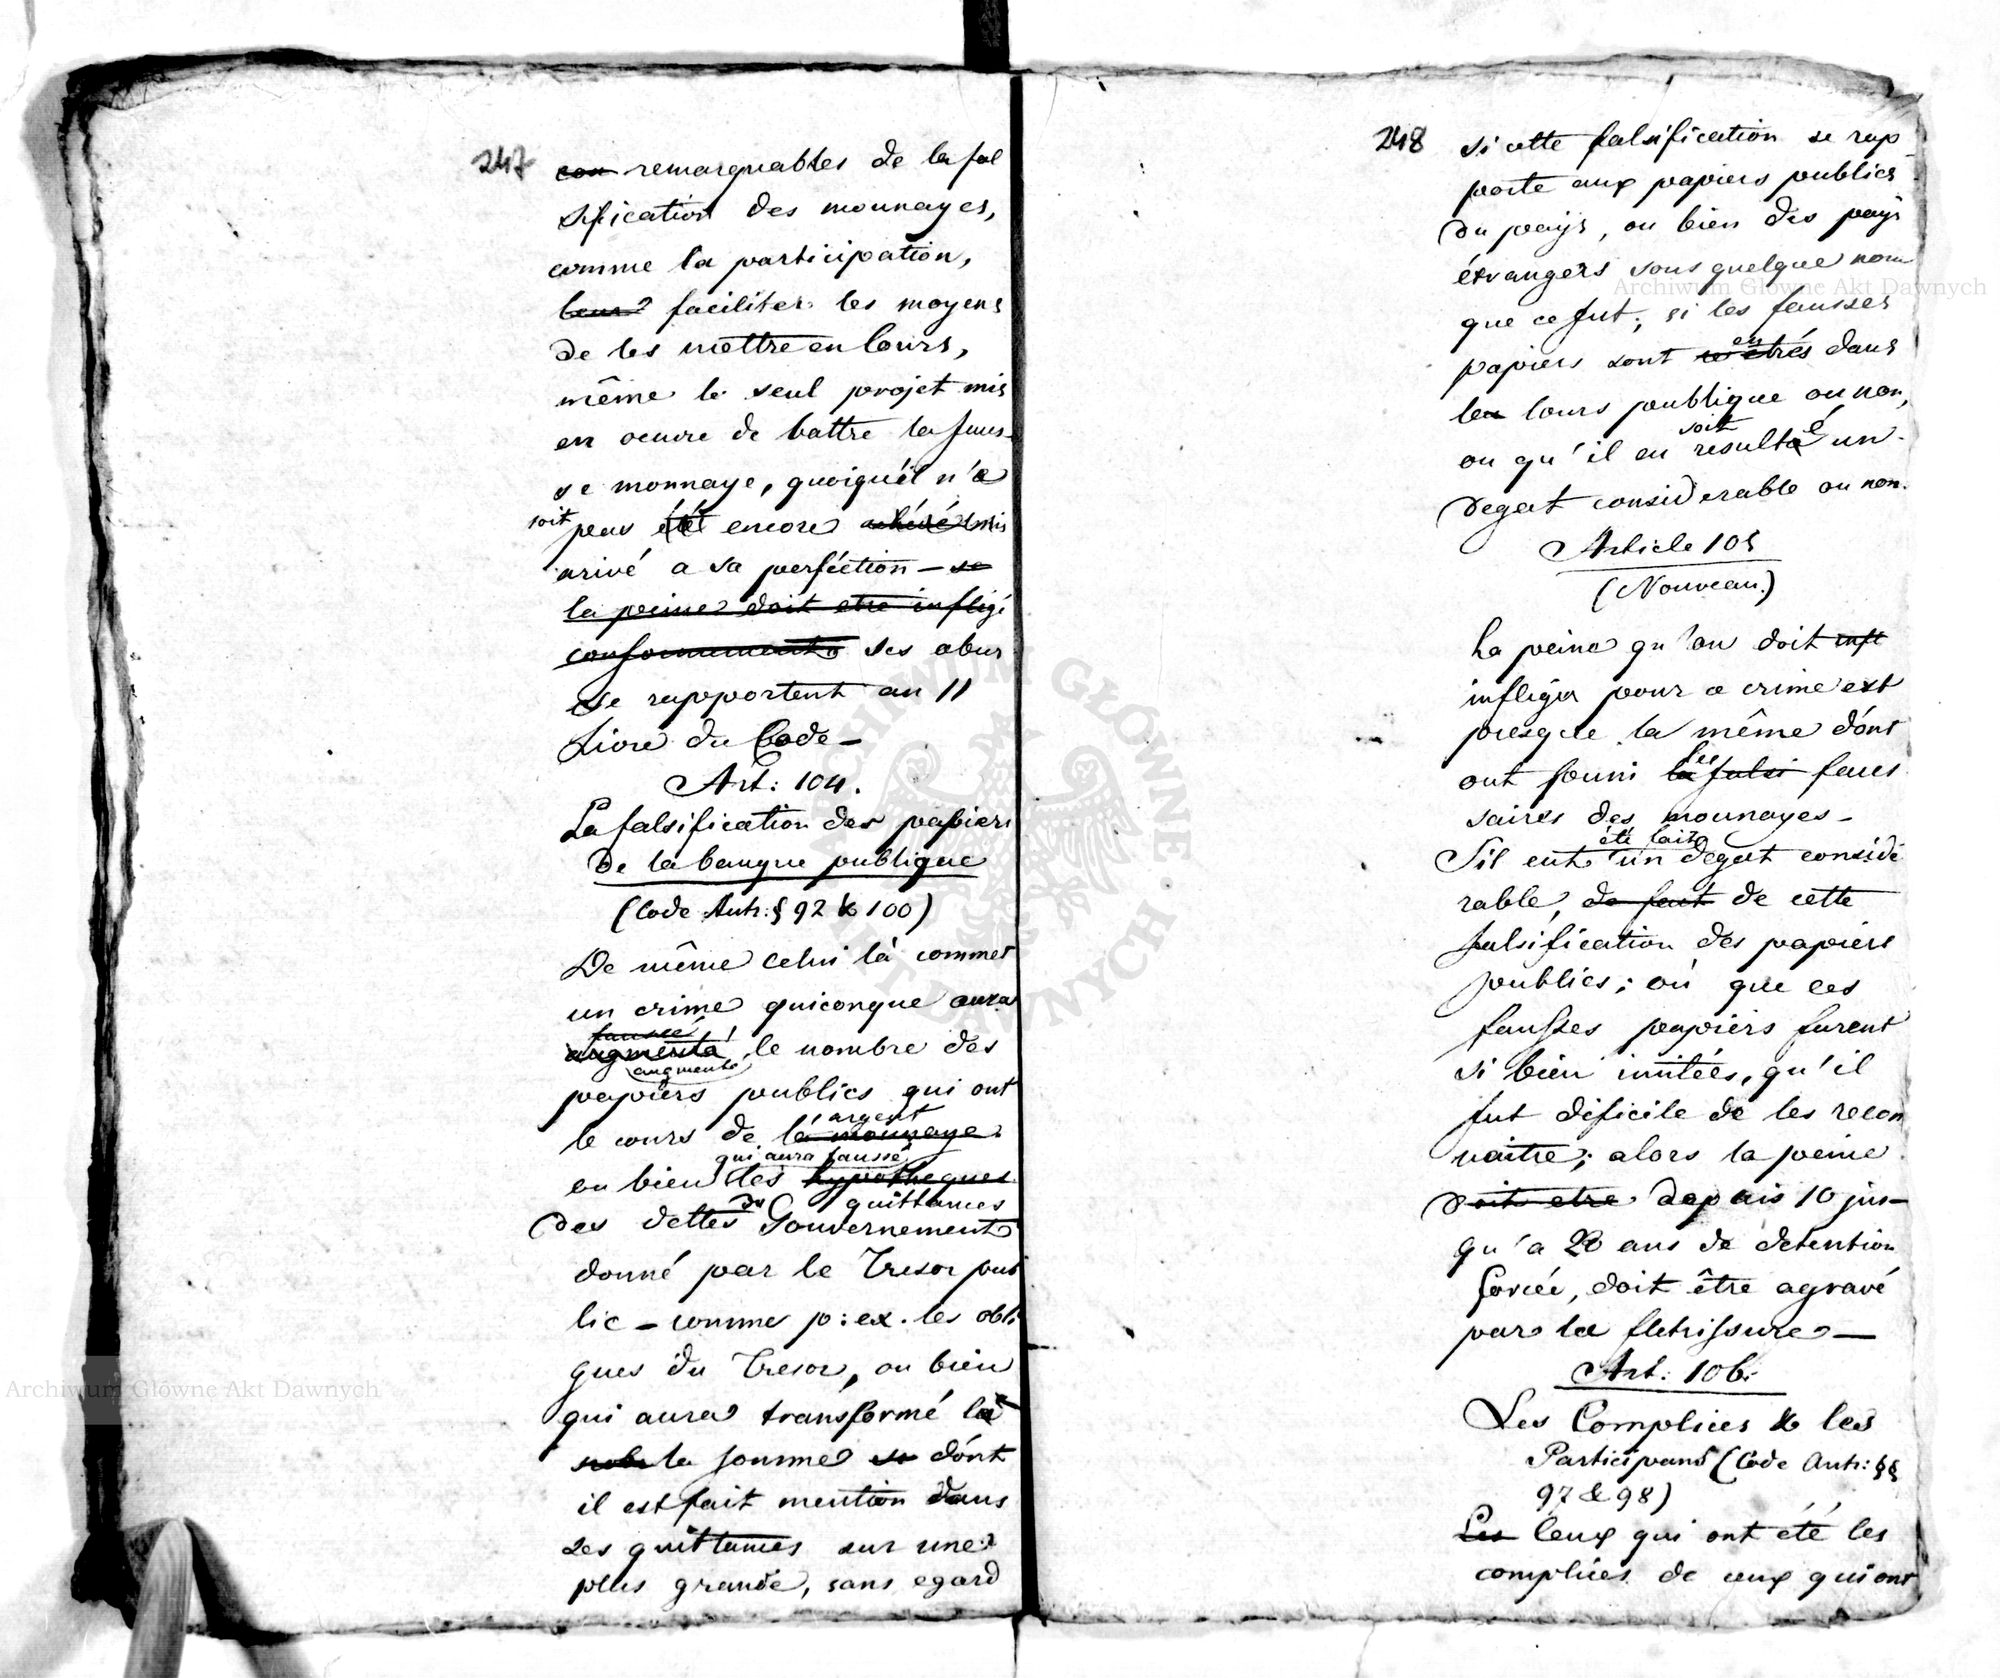 247
con remarquables de la fal
sification des monnayes,
comme la participation,
leur faciliter les moyens
de les mettre en Cours,
même le seul projet mis
en oeuvre de battre la faus-
se monnaye, quoiqu'il n'a
soit
pas été encore
arivé a sa perféction — se
la peine doit etre infligé
conformement a ses abus
se rapportent au 11
Livre du Code —
Art: 104.
La falsification des papiers
de la banque publique
(Code Autr: § 92 & 100)
De même celui là commet
un crime quiconque aura
faussé
augmenté le nombre des
augmenté
papiers publics qui ont
argent
le cours de la monnaye
qui aura faussé
ou bien les hypotheques
du quittances
des dettes Gouvernement
donné par le Tresor pub
lic — comme p: ex. les obli
ques du Tresor, ou bien
qui aura transformé la
la somme se dónt
il est fait mention dans
ses quittances sur une
plus grande, sans egard
248
si cette falsification se rap
porte aux papiers publics
du pays, ou bien des pays
étrangers sous quelque nom
que ce fut; si les fausses
en
papiers sont dans
leu Cours publique ou non,
soit é
ou qu'il en resulta un
degat considerable ou non.
Article 105
(Nouveau)
La peine qu'on doit infl
infliger pour ce crime est
presque la même dónt
les
ont founi la falsi faus
saires des monnayes —
été fait
S'il eut un degat conside
rable, de fait de cette
falsification des papiers
publics; où que ces
fausses papiers furent
si bien imitées, qu'il
fut dificile de les recon
naitre; alors la peine
doit etre depuis 10 jus-
qu'a 20 ans de detention
forcée, doit être agravé
par la fletrissure —
Art: 106.
Les Complices & les
Participans (Code Autr: §§
97 & 98)
Les Ceux qui ont été les
complices de ceux qui ont
Archiwum Główne Akt Dawnych
Archiwum Główne Akt Dawnych
ARCHIWUM GŁÓWNE AKT DAWNYCH